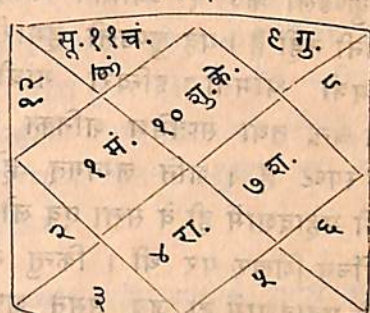 सू.११चं.
(बु)
९ गु.
१२
८
१० शु.के.
१ मं.
७ श.
२
४ रा.
६
३
५